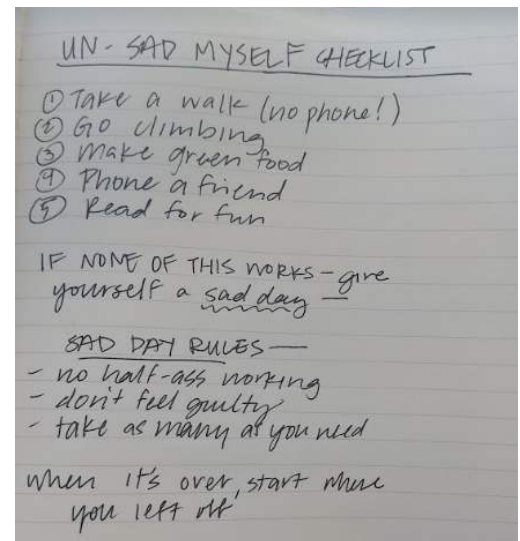 UN-SAD MYSELF CHECKLIST
① Take a walk (no phone!)
② Go climbing
③ Make green food
④ Phone a friend
⑤ Read for fun
IF NONE OF THIS WORKS - give
yourself a sad day —
SAD DAY RULES —
- no half-ass working
- don't feel guilty
- take as many as you need
when it's over, start where
you left off